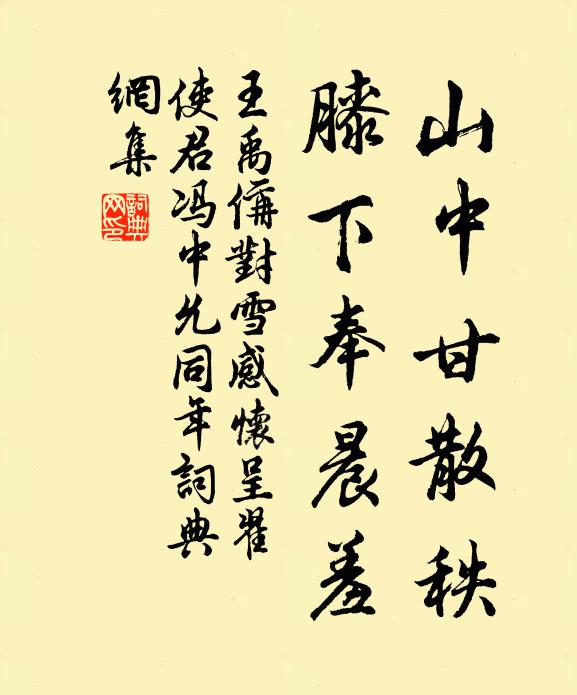 山中甘散秩
膝下奉晨羞
王禹偁對雪感懷呈翟
使君馮中允同年詞典
網集
詞典
网印